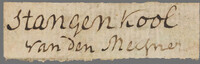 Stangen Kool
van den Meisner